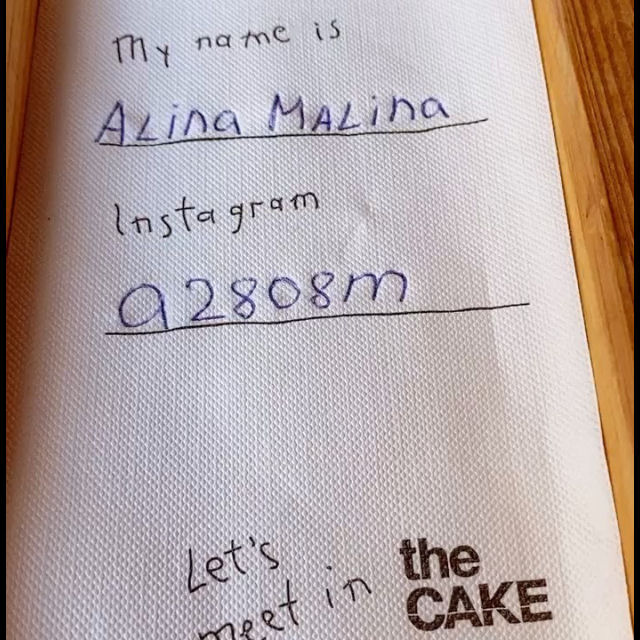 My name is
ALina MALina
Instagram
a2808m
Let's
meet in
the
CAKE